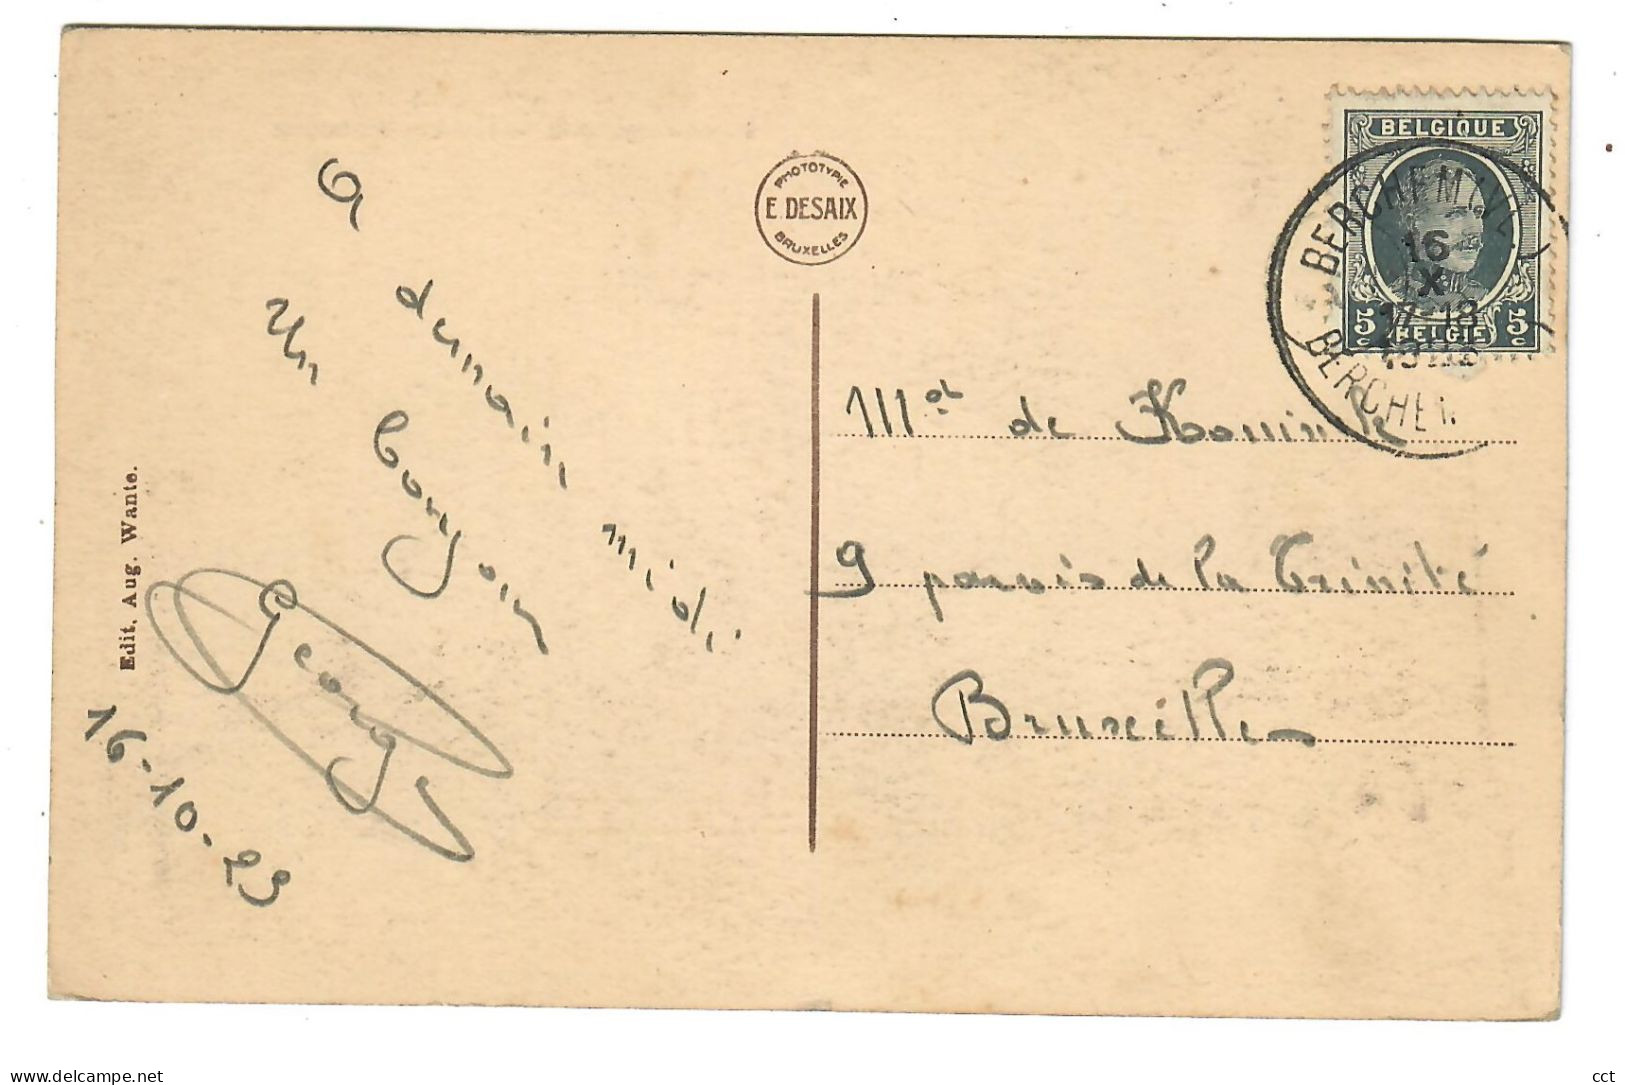 A demain midi
Un bonjour
George
16-10-23
Edit. Aug. Wante.
PHOTOTYPIE
E. DESAIX
BRUXELLES
BELGIQUE
5c BELGIE 5c
BERCHEM
16
X
17-18
BERCHEM
de Koninck
9 parvis de la Trinité
Bruxelles
cct